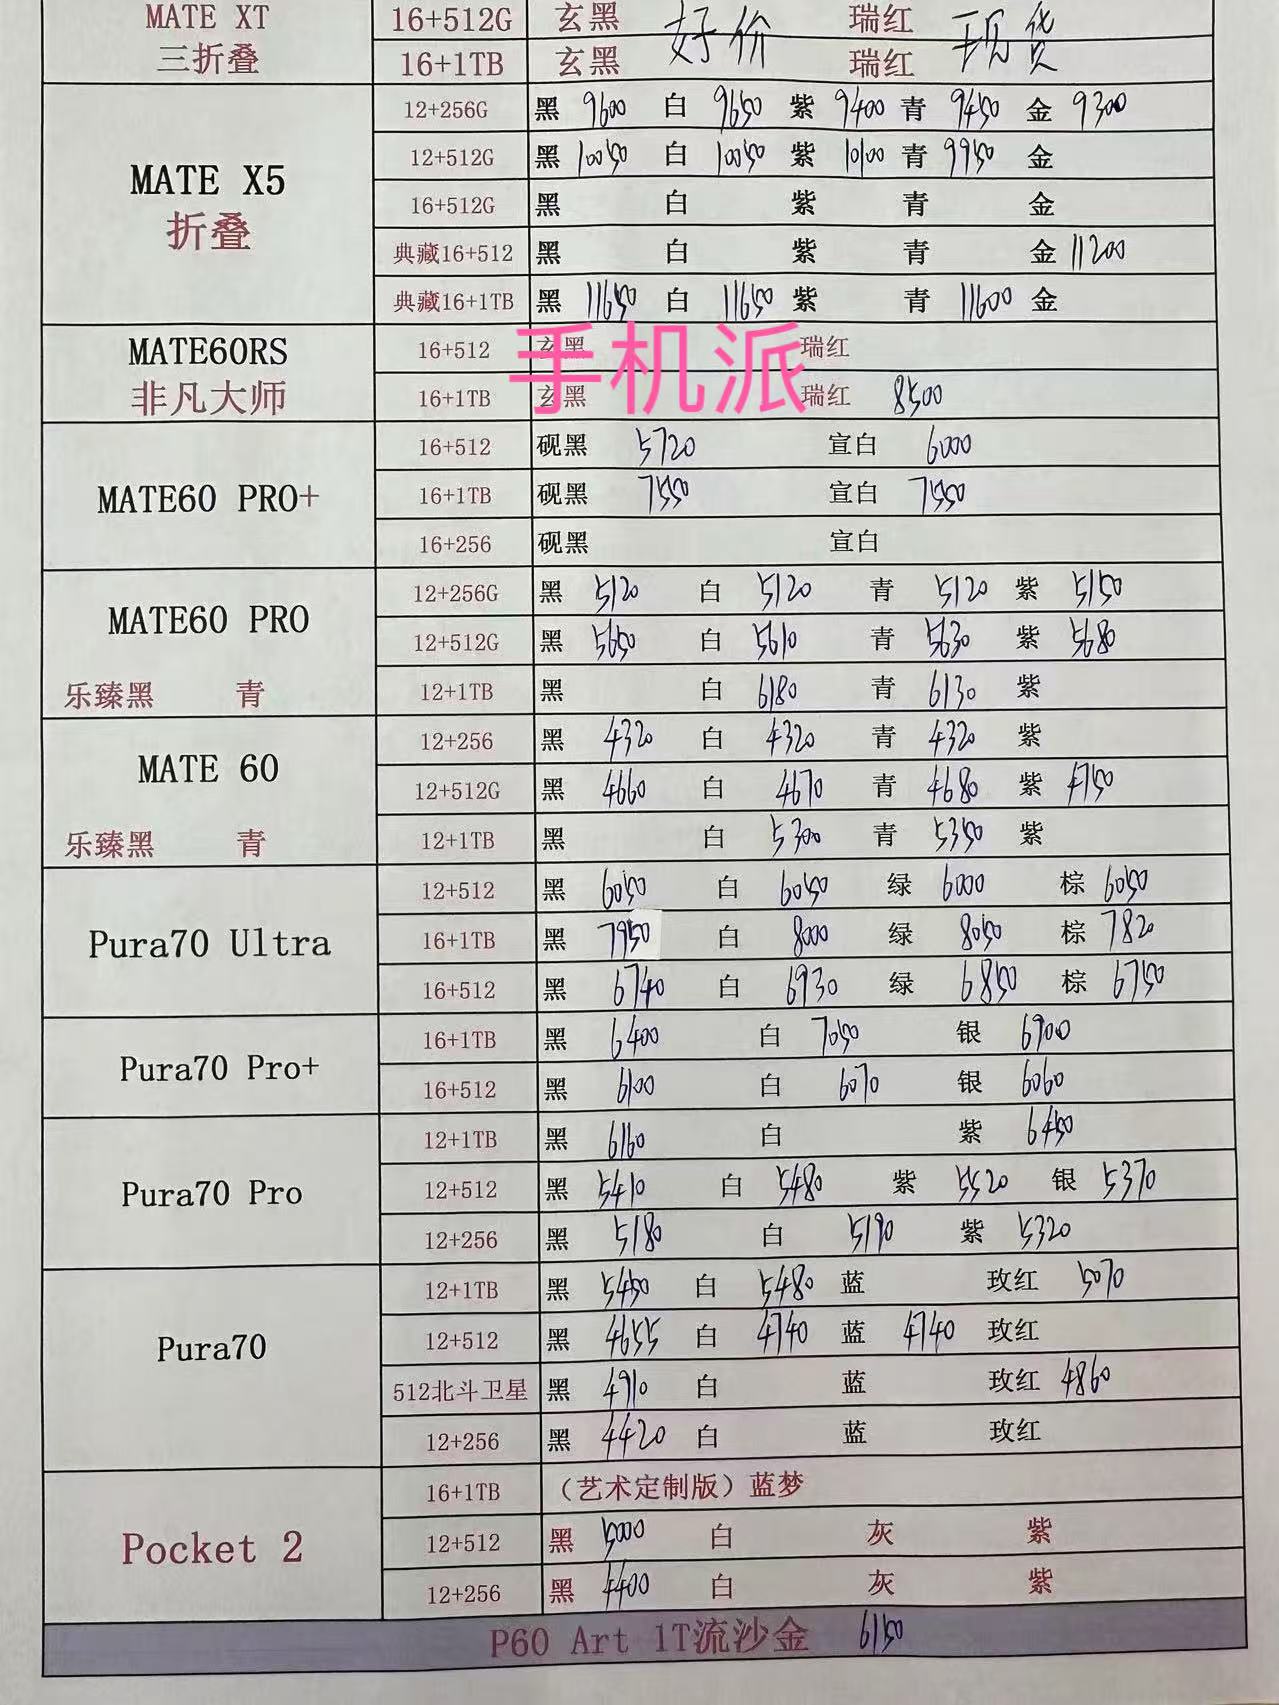 MATE XT 16+512G 玄黑 好价 瑞红 现货
三折叠 16+1TB 玄黑 瑞红
12+256G 黑 9600 白 9650 紫 9400 青 9450 金 9300
MATE X5 12+512G 黑 10050 白 10050 紫 10100 青 9950 金
折叠 16+512G 黑 白 紫 青 金
典藏16+512 黑 白 紫 青 金 11200
典藏16+1TB 黑 11650 白 11650 紫 青 11600 金
手机派
MATE60RS 16+512 玄黑 瑞红
非凡大师 16+1TB 玄黑 瑞红 8500
16+512 砚黑 5720 宣白 6000
MATE60 PRO+ 16+1TB 砚黑 7550 宣白 7550
16+256 砚黑 宣白
12+256G 黑 5120 白 5120 青 5120 紫 5150
MATE60 PRO 12+512G 黑 5650 白 5610 青 5630 紫 5680
乐臻黑 青 12+1TB 黑 白 6180 青 6130 紫
12+256 黑 4320 白 4320 青 4320 紫
MATE 60 12+512G 黑 4660 白 4670 青 4680 紫 4750
乐臻黑 青 12+1TB 黑 白 5300 青 5350 紫
12+512 黑 6050 白 6050 绿 6000 棕 6050
Pura70 Ultra 16+1TB 黑 7950 白 8000 绿 8050 棕 7820
16+512 黑 6740 白 6930 绿 6850 棕 6750
Pura70 Pro+ 16+1TB 黑 6400 白 7050 银 6900
16+512 黑 6100 白 6070 银 6060
12+1TB 黑 6160 白 紫 6450
Pura70 Pro 12+512 黑 5410 白 5480 紫 5520 银 5370
12+256 黑 5180 白 5190 紫 5320
12+1TB 黑 5450 白 5480 蓝 玫红 5070
Pura70 12+512 黑 4655 白 4740 蓝 4740 玫红
512北斗卫星 黑 4910 白 蓝 玫红 4860
12+256 黑 4420 白 蓝 玫红
16+1TB （艺术定制版）蓝梦
Pocket 2 12+512 黑 5000 白 灰 紫
12+256 黑 4400 白 灰 紫
P60 Art 1T流沙金 6150